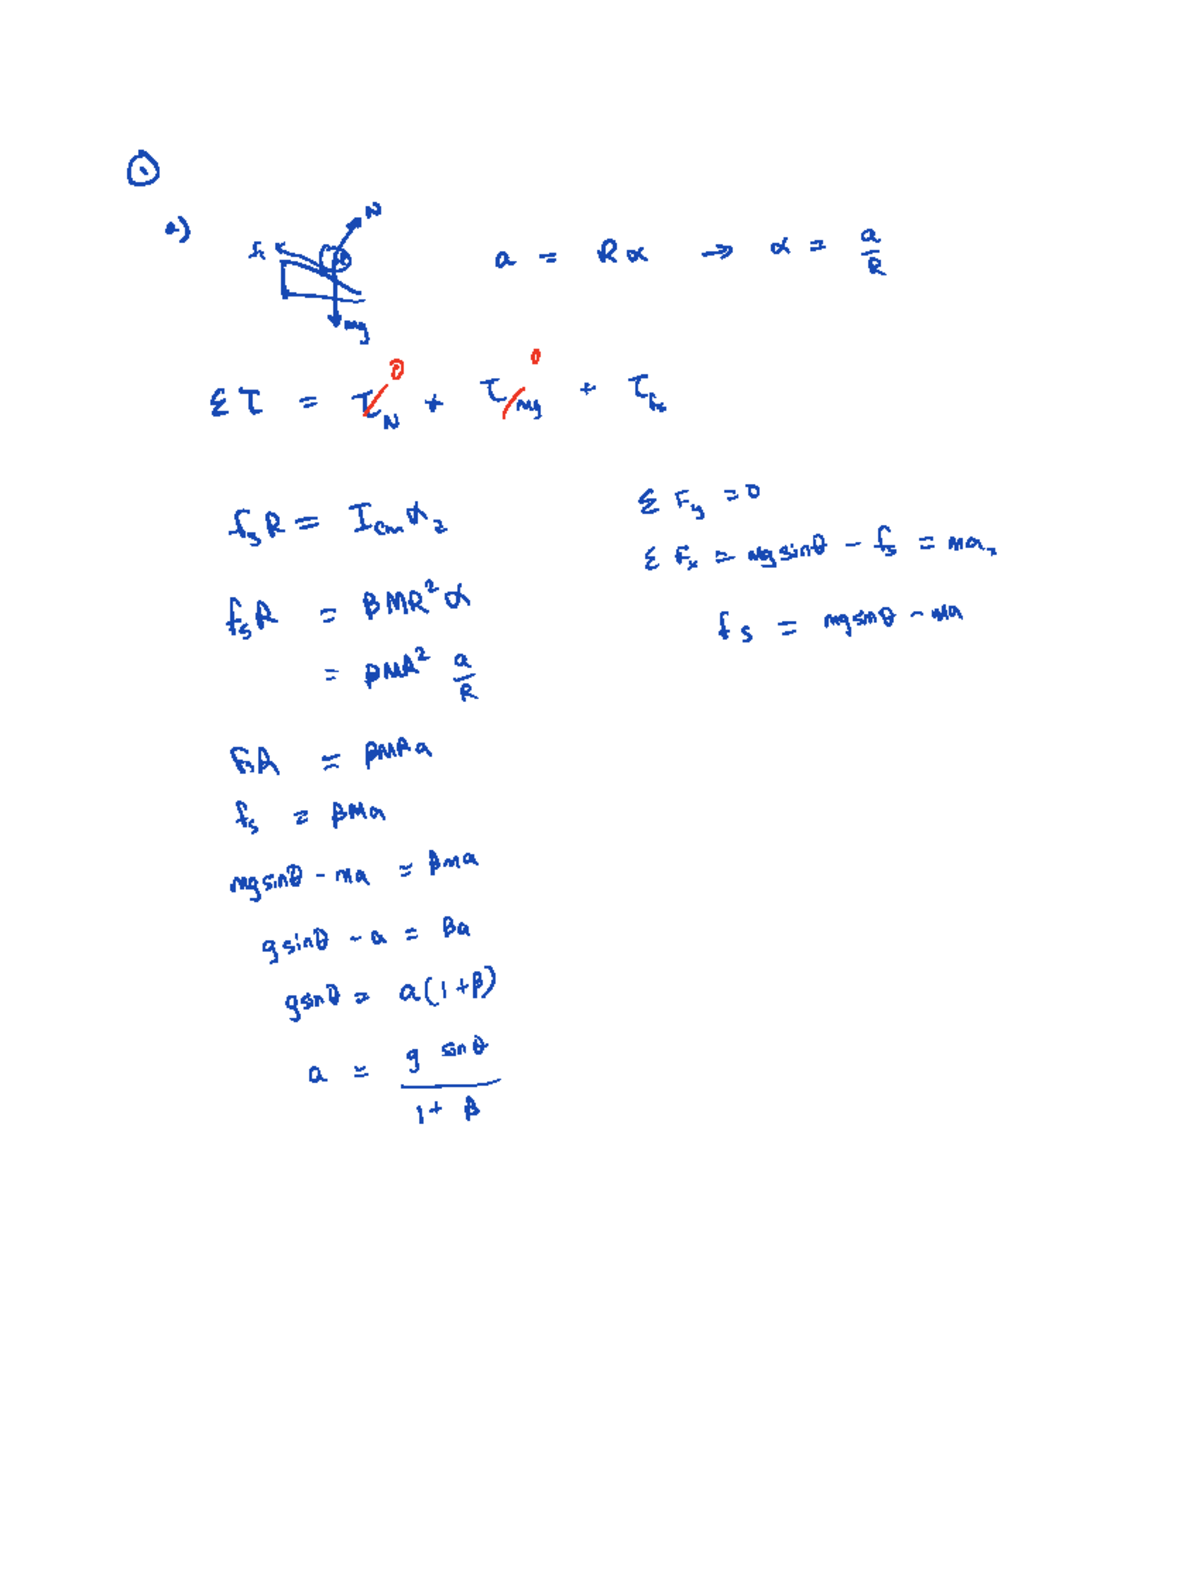 ①
a)
N
fs
mg
a = Rα → α = a/R
Στ = τ_N 0 + τ_mg 0 + τ_fs
f_s R = I_cm α_z
f_s R = βMR² α
= βMR² a/R
f_s R = βMRa
f_s = βMa
mg sinθ - ma = βma
g sinθ - a = βa
g sinθ = a(1+β)
a = g sinθ / 1+ β
Σ F_y = 0
Σ F_x = mg sinθ - f_s = ma_x
f_s = mg sinθ - ma